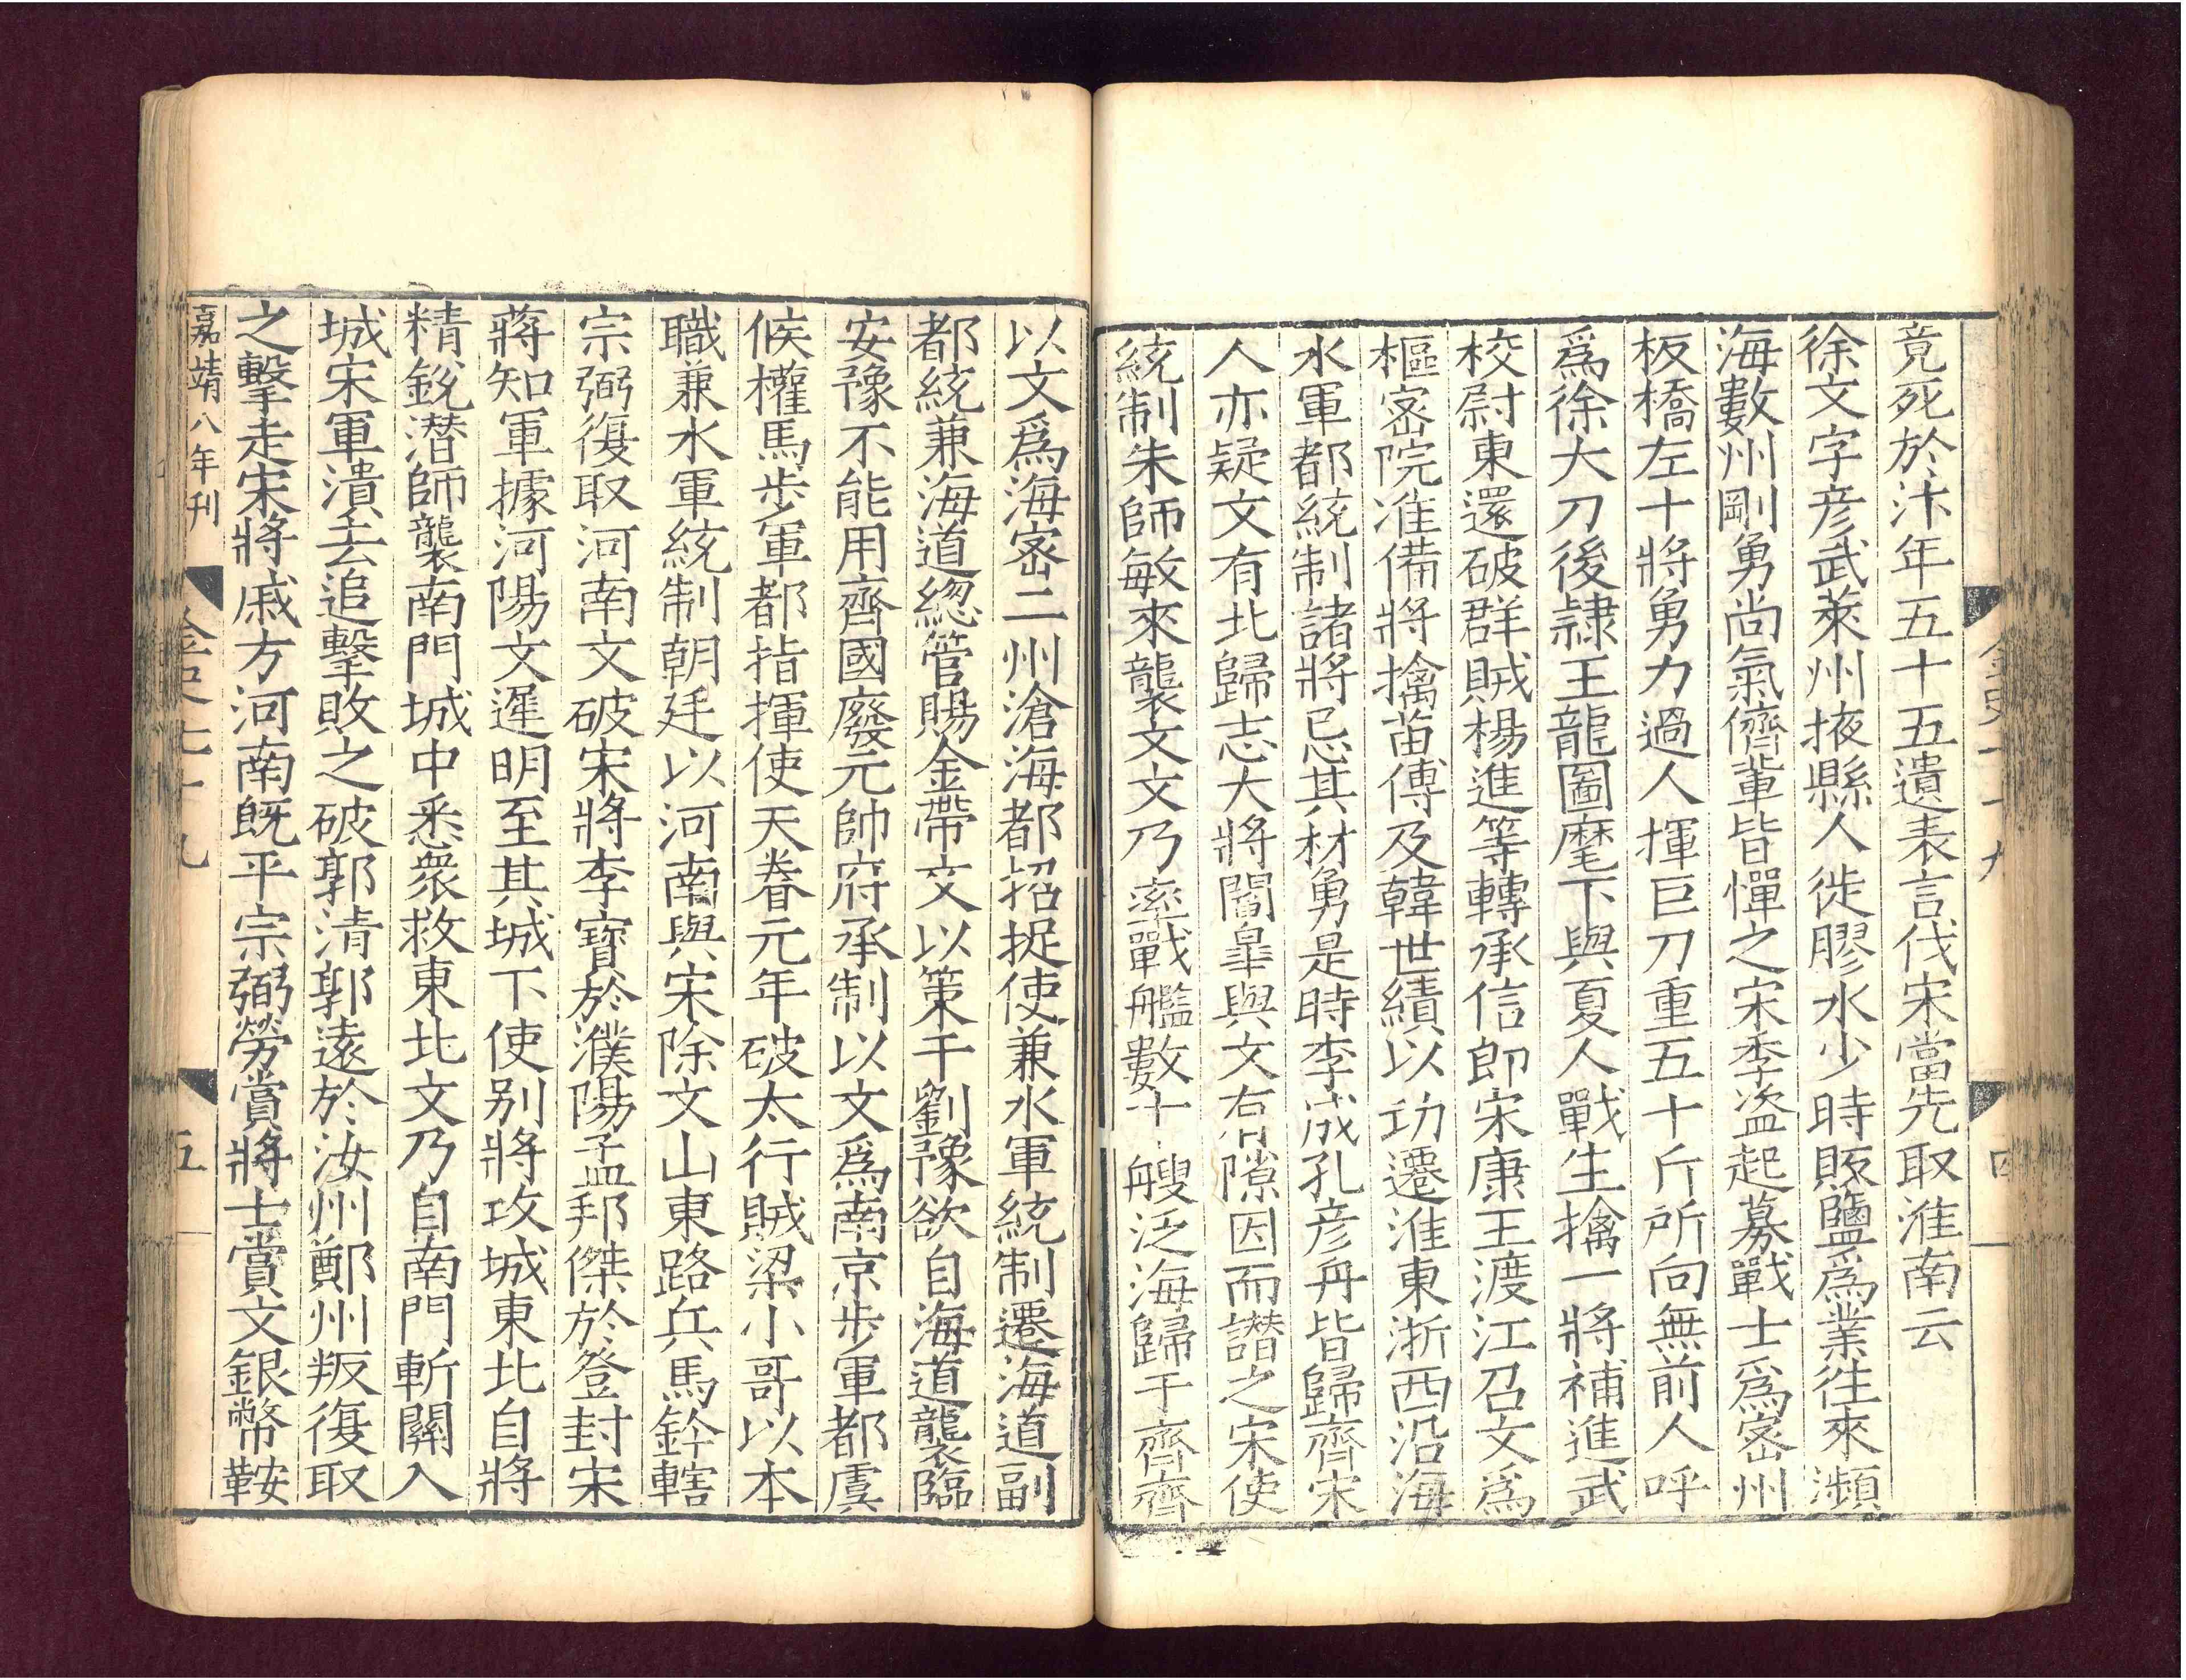 竟死於汴年五十五遺表言伐宋當先取淮南云
徐文字彦武萊州掖縣人徙膠水少時販鹽爲業徃來瀕
海數州剛勇尚氣儕輩皆憚之宋季盗起募戰士爲密州
板橋左十將勇力過人揮巨刀重五十斤所向無前人呼
爲徐大刀後隷王龍圖麾下與夏人戰生擒一將補進武
校尉東還破群賊楊進等轉承信郎宋康王渡江召文爲
樞密院准備將擒苗傅及韓世績以功遷淮東浙西沿海
水軍都統制諸將忌其材勇是時李成孔彦舟皆歸齊宋
人亦疑文有北歸志大將閻臯與文有隙因而譖之宋使
統制朱師敏來襲文文乃率戰艦數十艘泛海歸于齊齊
以文爲海密二州滄海都招捉使兼水軍統制遷海道副
都統兼海道緫管賜金帶文以策干劉豫欲自海道襲臨
安豫不能用齊國廢元帥府承制以文爲南京步軍都虞
候權馬步軍都指揮使天眷元年破太行賊梁小哥以本
職兼水軍統制朝廷以河南與宋除文山東路兵馬鈐轄
宗弼復取河南文破宋將李寶於濮陽孟邦傑於登封宋
蔣知軍據河陽文遲明至其城下使别將攻城東北自將
精鋭潛師襲南門城中悉衆救東北文乃自南門斬關入
城宋軍潰去追擊敗之破郭清郭遠於汝州鄭州叛復取
之擊走宋將戚方河南既平宗弼勞賞將士賞文銀幣鞍
嘉靖八年刊
金史七十九
五